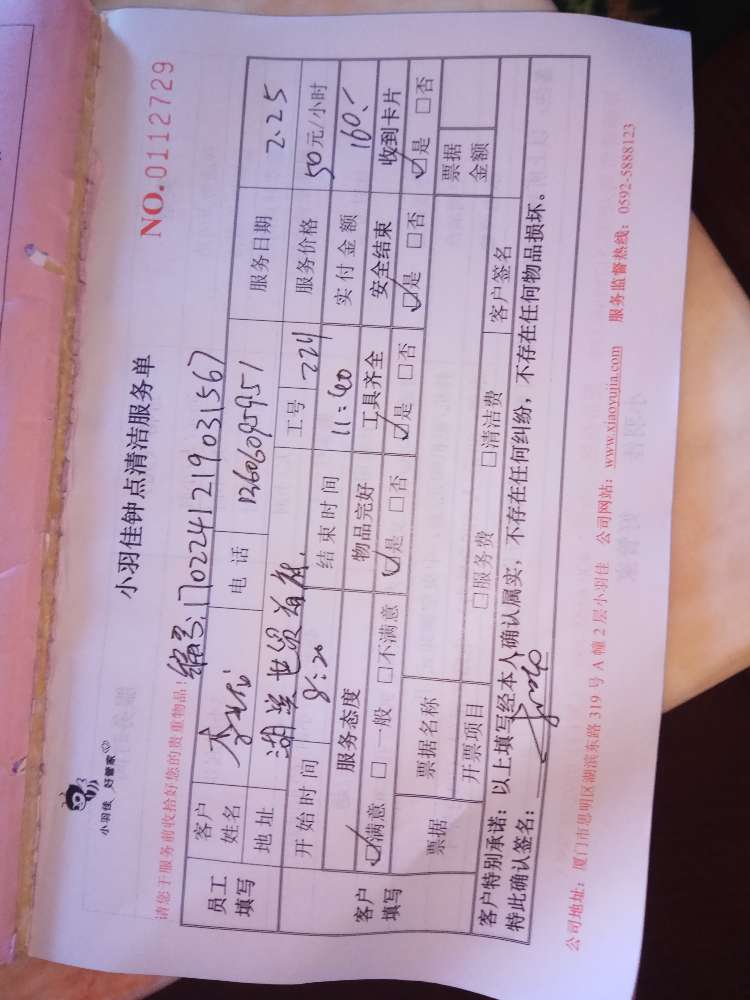 小羽佳 好管家
小羽佳钟点清洁服务单
NO.0112729
请您于服务前收拾好您的贵重物品!
编号:1702241219031567
员工填写 客户姓名 李 电话 13606095951 服务日期 2.25
地址 湖 世贸首 工号 224 服务价格 50元/小时
开始时间 8:20 结束时间 11:40 实付金额 160.
客户填写 服务态度 物品完好 工具齐全 安全结束 收到卡片
☑满意 □一般 □不满意 ☑是 □否 ☑是 □否 ☑是 □否 ☑是 □否
票据 票据名称 票据金额
开票项目 □服务费 □清洁费 客户签名
客户特别承诺:以上填写经本人确认属实,不存在任何纠纷,不存在任何物品损坏。
特此确认签名:
公司地址:厦门市思明区湖滨东路319号A幢2层小羽佳 公司网站:www.xiaoyujia.com 服务监督热线:0592-5888123